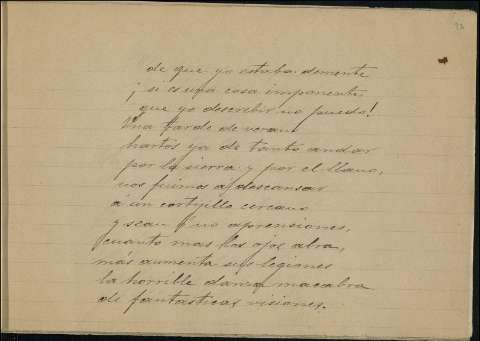 de que yo estaba demente
¡si es una cosa imponente
que yo describir no puedo!
Una tarde de verano
hartos ya de tanto andar
por la sierra y por el llano,
nos fuimos a descansar
á un cortijillo cercano
y sean ó no aprensiones,
cuanto mas los ojos abra,
más aumenta sus legiones
la horrible danza macabra
de fantasticas visiones.